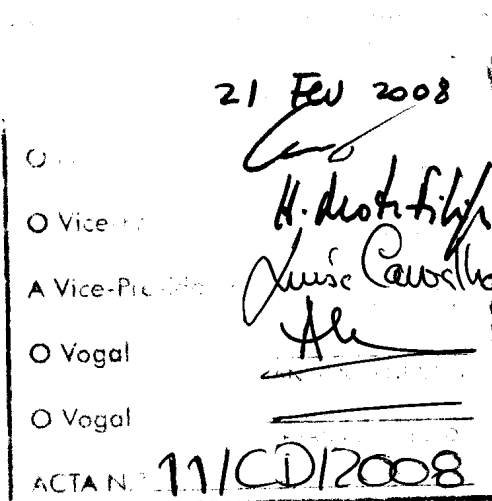 21 Fev 2008
O
O Vice-
H. Mota Filipe
A Vice-Pre
Luísa Carvalho
O Vogal
O Vogal
ACTA N.º 11/CD/2008